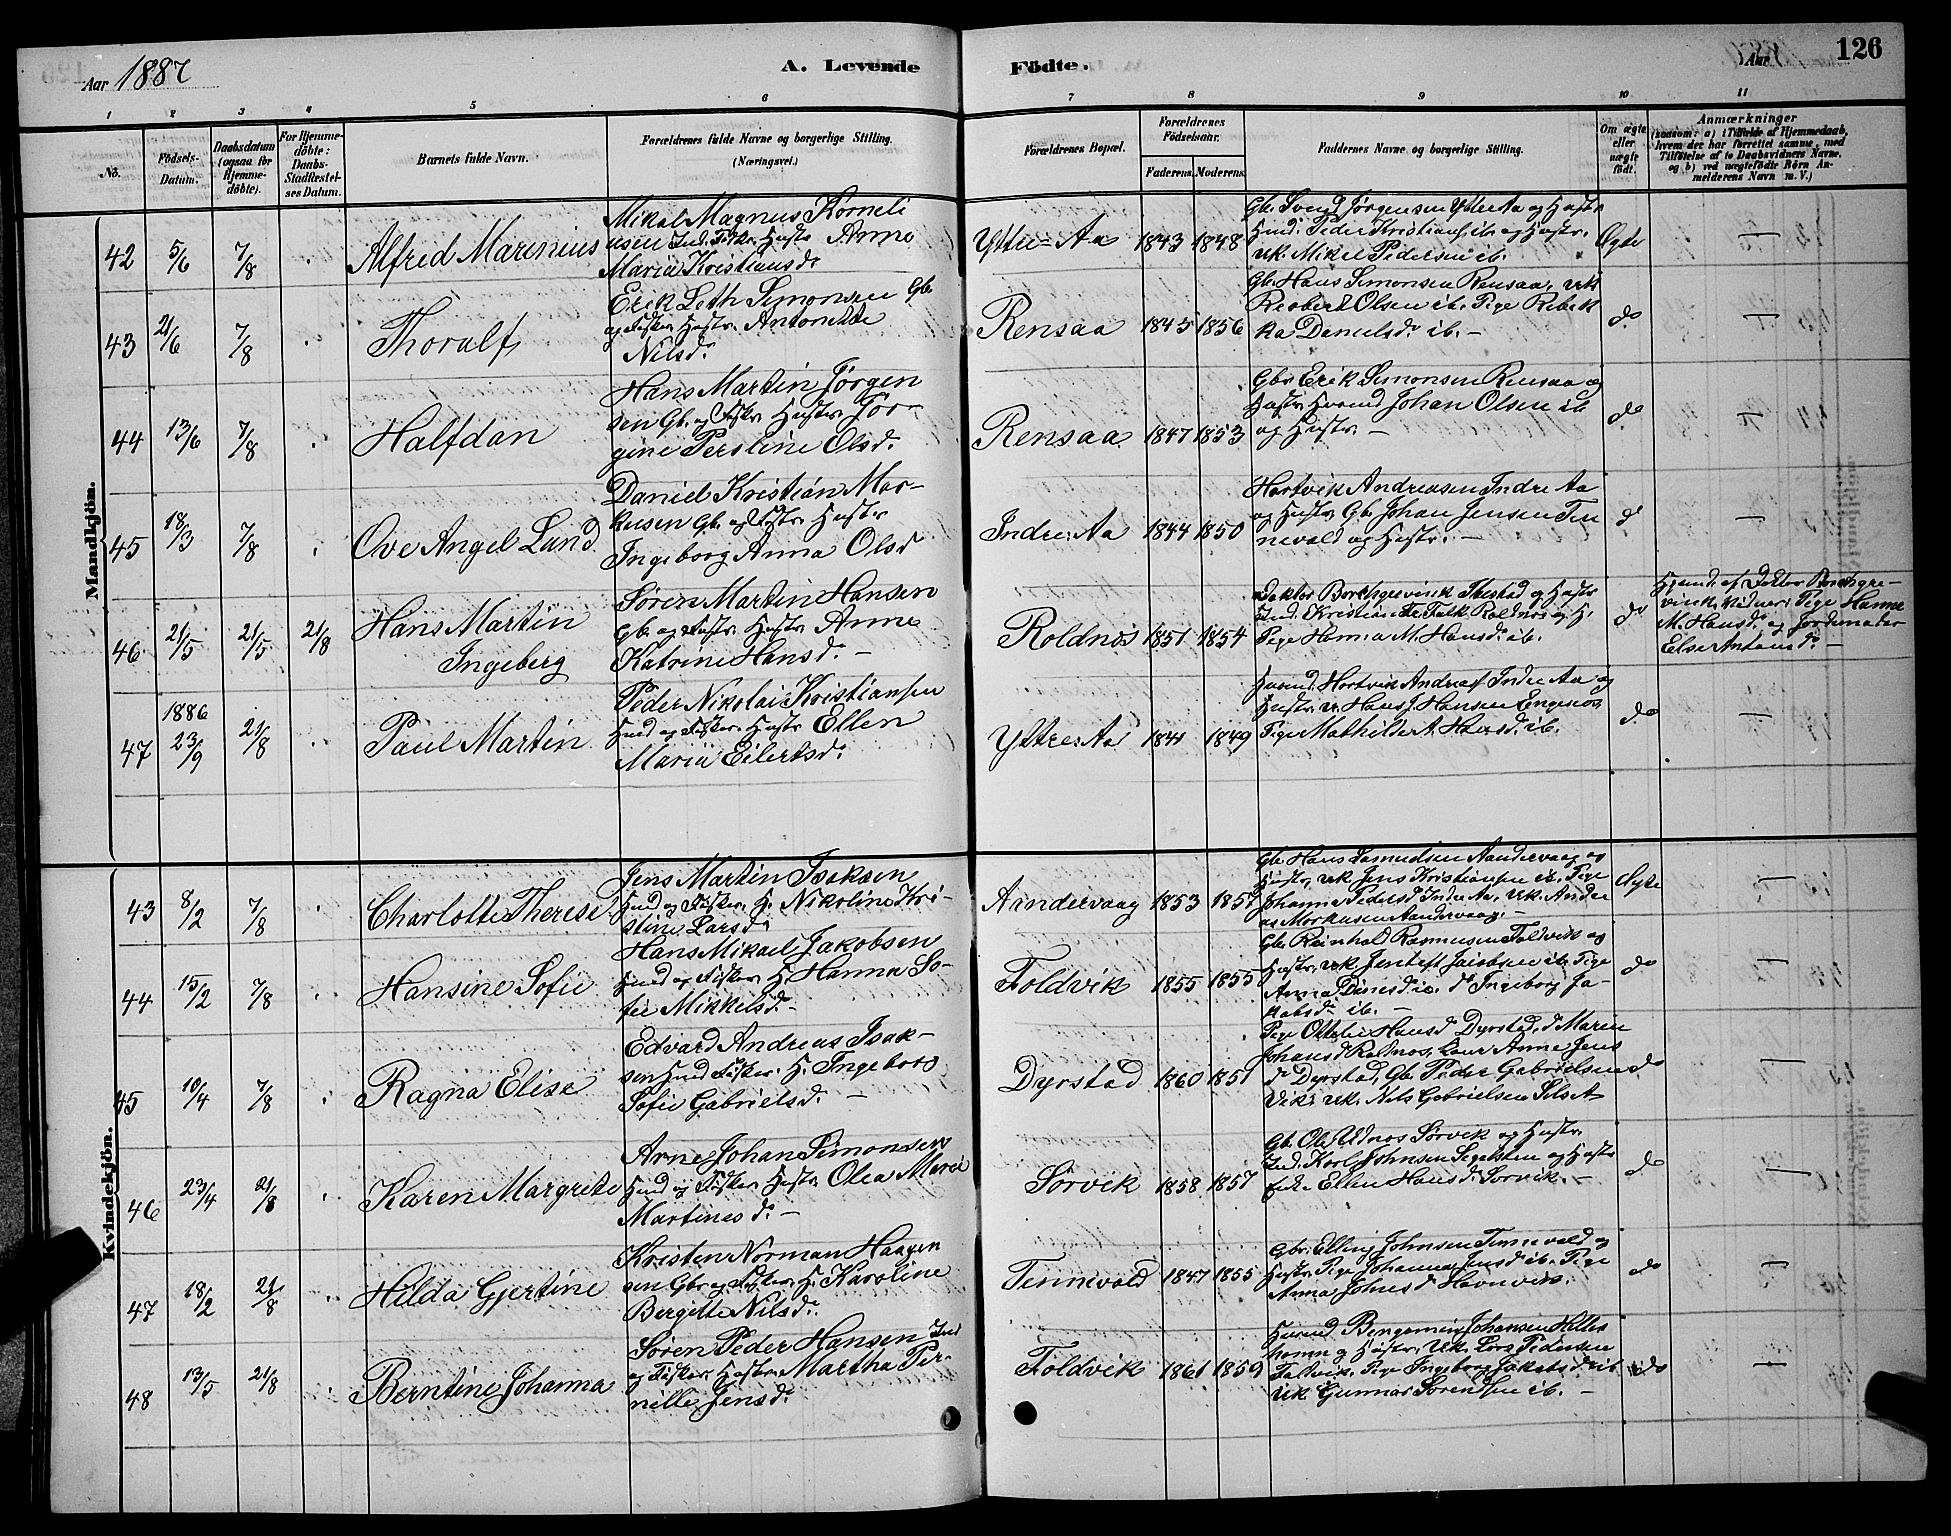 Aar 1887
A. Levende Födte.
Aar
126
1 2 3 4 5 6 7 8 9 10 11
No.
Födsels-Datum.
Daabsdatum (ogsaa for Hjemmedöbte).
For Hjemmedöbte: Daabs-Stadfæstelses Datum.
Barnets fulde Navn.
Forældrenes fulde Navne og borgerlige Stilling. (Næringsvei.)
Forældrenes Bopæl.
Forældrenes Födselsaar.
Faderens. Moderens.
Faddernes Navne og borgerlige Stilling.
Om ægte eller uægte födt.
Anmærkninger
(saasom: a) i Tilfælde af Hjemmedaab, hvem der har forrettet samme, med Tilföielse af to Daabsvidners Navne, og b) ved uægtefödte Börn Anmelderens Navn m. V.)
Mandkjön.
42 5/6 7/8 Alfred Marenius
Mikal Magnus Korneli
usen Ind. Fisker Hustr Anne
Maria Kristiansd.
Yttre-Aa 1843 1848
Gb. Svend Jørgensen Yttre Aa og Hustr.
Hmd. Peder Kristians. ib. og Hustr.
uk. Mikel Pedersen ib.
Ægte
43 21/6 7/8 Thoralf
Erik Seth Simonsen Gb.
og Fisker Hustr. Antonette
Nilsd.
Rensaa 1845 1856
Gb. Hans Simonsen Rensaa, uk
Reobert Olsen ib. Pige Rebek
ka Danielsd. ib. -
do
44 13/6 7/8 Halfdan
Hans Martin Jørgen
sen Gb. og Fisker Hustr. Jør-
gine Persline Olsd.
Rensaa 1847 1853
Gbr Erik Simonsen Rensaa og
Hustr. Huusmd Johan Olsen ib
og Hustr. -
do
45 18/3 7/8 Ove Angel Lund
Daniel Kristian Mar-
kusen Gb. og Fiskr. Hustr
Ingeborg Anna Olsd
Indre-Aa 1844 1850
Hartvik Andreasen Indre Aa
og Hustr, Gb. Johan Jensen Ten
nevold og Hustr. -
d
46 21/5 21/5 21/8 Hans Martin
Ingeberg
Søren Martin Hansen
Gb. og Fiskr. Hustr. Anne
Katrine Hansd. -
Roldnos 1851 1854
Doktor Borchgrevink Ibestad og Hustr
Ind. Kristian Fr. Falk Roldnos og H.
Pige Hanna M. Hansd. ib.
do
Hjemd. af Doktor Borchgre-
vink Vidner: Pige Hanna
M. Hansd. og Jordmoder
Else Antonsd. -
47 1886 23/9 21/8 Paul Martin
Peder Nikolai Kristiansen
Hmd og Fisker. Hustr Ellen
Maria Eilertsd.
Yttre-Aa 1841 1849
Huusmd. Hartvik Andreas. Indre Aa og
Hustr. u. Hans J. Hansen Engenes
Pige Mathilde A. Hansd. ib.
do
Kvindekjön.
43 8/2 7/8 Charlotte Therese
Jens Martin Isaksen
Hmd og Fisker. H. Nikoline Kri-
stine Larsd.
Aandervaag 1853 1857
Gb. Hans Samuelsen Aandervaag og
Hustr, uk. Jens Kristiansen ib. Pige
Johanna Pedersd Indre Aa, uk. Andre
as Markusen Aandervaag. -
Ægte
44 15/2 7/8 Hansine Sofie
Hans Mikael Jakobsen
Hmd og Fisker H. Hanna So-
fie Mikkelsd. -
Foldvik 1855 1855
Gb. Reinhold Rasmussen Foldvik og
Hustr, uk. Jentoft Jakobsen ib. Pige
Anna Dinesd ib. d Ingeborg Ja-
kobsd. ib. -
do
45 10/4 7/8 Ragna Elise
Edvard Andreas Isak-
sen Hmd Fisker. H. Ingeborg
Sofie Gabrielsd. -
Dyrstad 1860 1851
Pige Ottelie Hansd Dyrstad, d Maren
Johansd Roldnos, Anne Jens
d Dyrstad, Gb. Peder Gabrielsen
Vik, uk. Nils Gabrielsen
do
46 23/4 21/8 Karen Margrete
Arne Johan Simonsen
Hmd og Fisker Hustr. Olea Marie
Martinesd. -
Sørvik 1858 1857
Gb. Ole Aldnos Sørvik og Hustr.
Ind. Karl Johnsen Segelsten og Hustr
Ellen Hansd. Sørvik. -
do
47 18/2 21/8 Hilda Gjertine
Kristen Norman Haagen
sen Gbr og Fisker. H. Karoline
Bergitte Nilsd.
Tennevold 1847 1855
Gbr. Elling Johnsen Tennevold og
Hustr. Pige Johanna Jensd ib. Pige
Anna Johnsd Havnvik.
do
48 13/5 21/8 Berntine Johanna
Søren Peder Hansen Ind
og Fisker Hustr. Martha Per-
nille Jensd.
Foldvik 1861 1859
Huusmd Bengamin Johansen Hilles
hamn og Hustr. Uk. Lars Pedersen
Foldvik. Pige Ingeborg Jakobsd ib
Uk. Gunnar Sørensen ib. -
do